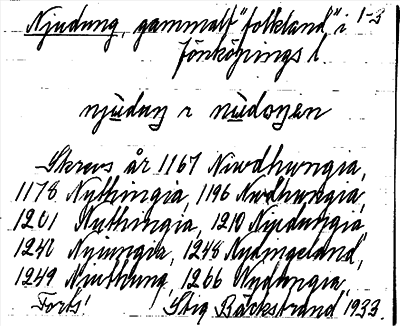 Njudung, gammalt "folkland" i 1-3
Jönköpings l.
njùduŋ ɪ nùdoŋen
Skrevs år 1167 Niudhungia,
1178 Nythingia, 1196 Nudhungia,
1201 Nuthingia, 1210 Njudungia,
124 Nyiungia, 1248 Nydingeland,
1249 Niuthung, 1266 Nydungia,
Forts! Stig Bäckstrand 1933.